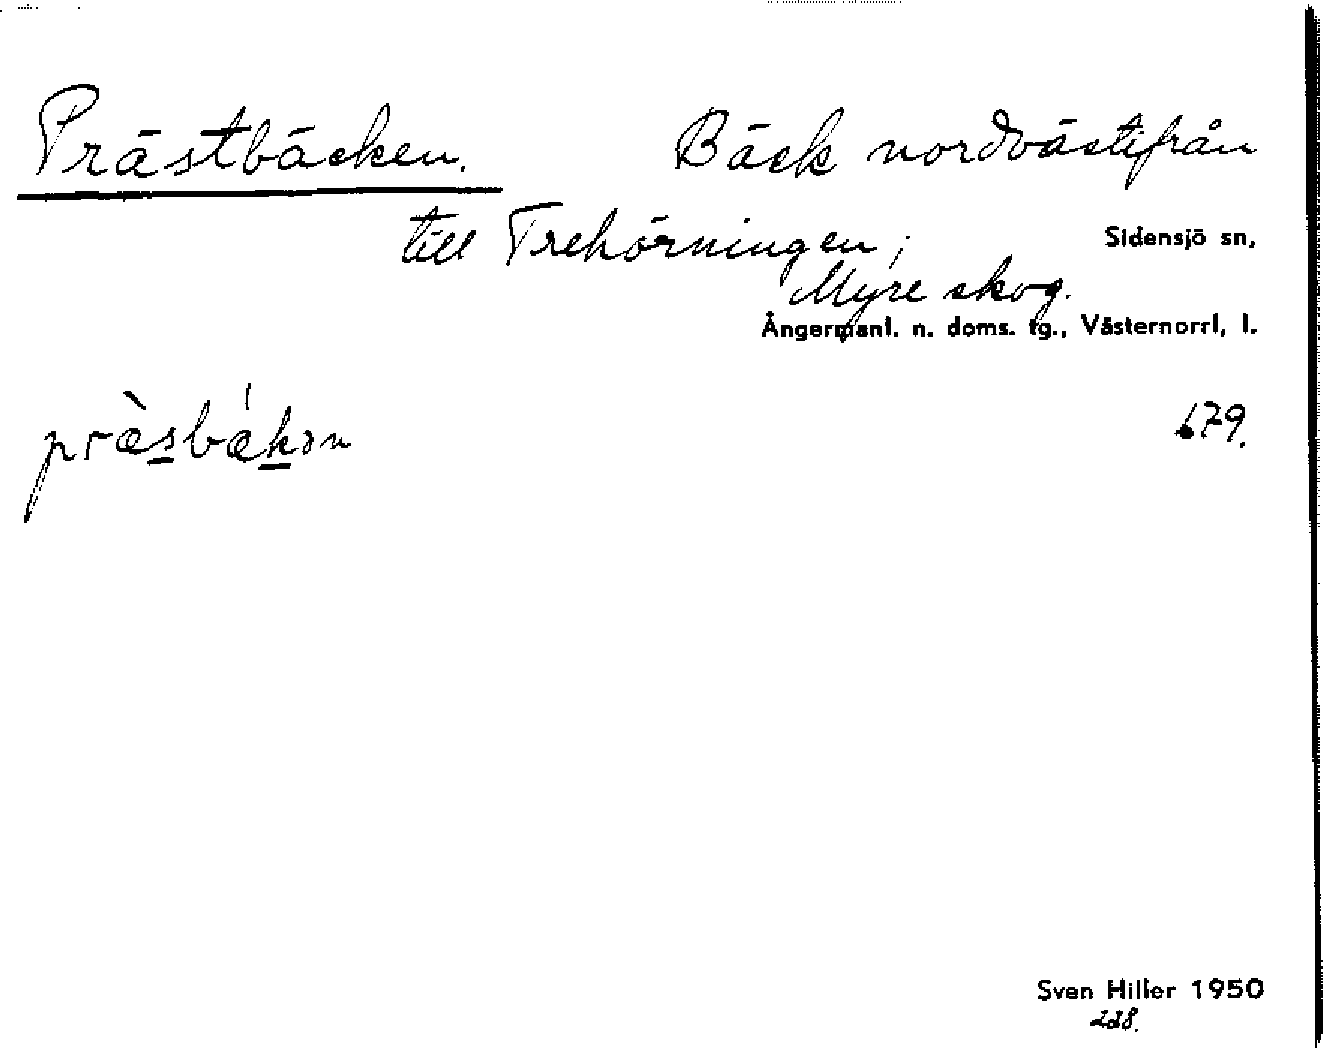 Prästbäcken. Bäck nordvästifrån
till Trehörningen;
Sidensjö sn,
Myre skog.
Ångermanl. n. doms. tg., Västernorrl, l.
præ̀sbæ̍kən
679.
Sven Hiller 1950